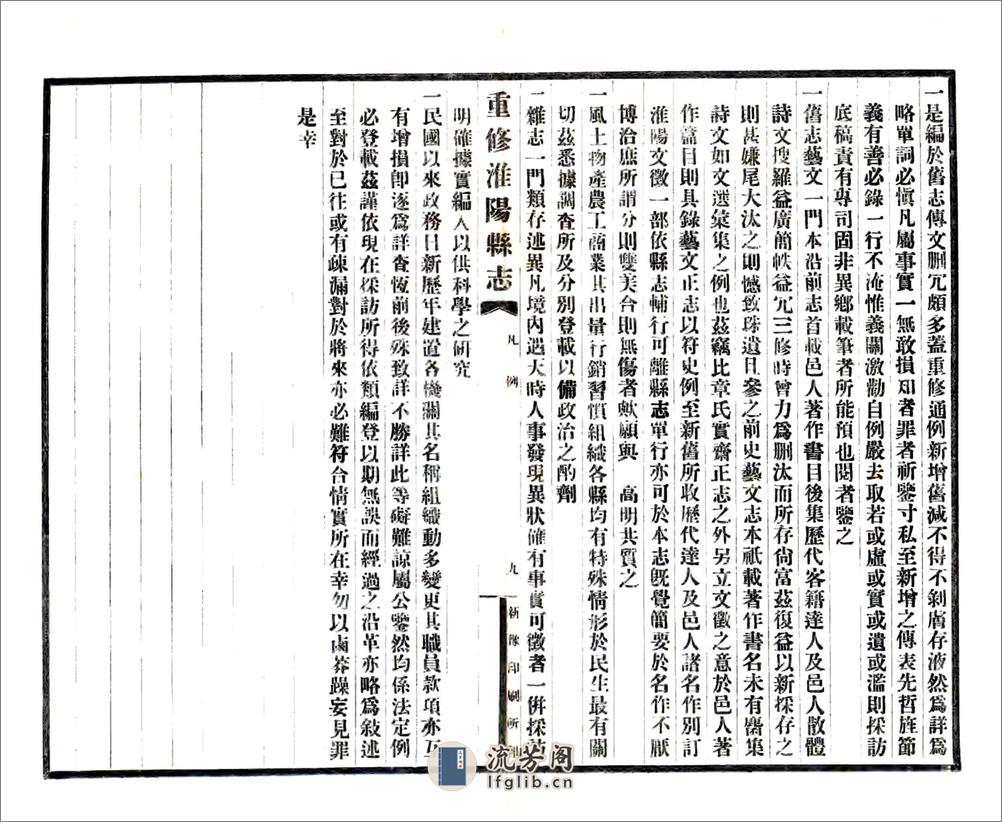 一是編於舊志傳文刪冗頗多蓋重修通例新增舊減不得不剝膚存液然爲詳爲
略單詞必愼凡屬事實一無敢損知者罪者祈鑒寸私至新增之傳表先哲旌節
義有善必錄一行不淹惟義關激勸自例嚴去取若或虛或實或遺或濫則採訪
底稿責有專司固非異鄉載筆者所能預也閱者鑒之
一舊志藝文一門本沿前志首載邑人著作書目後集歷代客籍達人及邑人散體
詩文搜羅益廣簡帙益冗三修時曾力爲刪汰而所存尙富茲復益以新採存之
則甚嫌尾大汰之則憾致珠遺且參之前史藝文志本祇載著作書名未有麕集
詩文如文選彙集之例也茲竊比章氏實齋正志之外另立文徵之意於邑人著
作篇目則具錄藝文正志以符史例至新舊所收歷代達人及邑人諸名作別訂
淮陽文徵一部依縣志輔行可離縣志單行亦可於本志旣覺簡要於名作不厭
博洽庶所謂分則雙美合則無傷者歟願與 高明共質之
一風土物產農工商業其出量行銷習慣組織各縣均有特殊情形於民生最有關
切茲悉據調査所及分別登載以備政治之酌劑
一雜志一門類存述異凡境內遇天時人事發現異狀確有事實可徵者一倂採訪
重修淮陽縣志
凡例
九
新豫印刷所
明確據實編入以供科學之研究
一民國以來政務日新歷年建置各機關其名稱組織動多變更其職員款項亦互
有增損卽逐爲詳査恆前後殊致詳不勝詳此等礙難諒屬公鑒然均係法定例
必登載茲謹依現在採訪所得依類編登以期無誤而經過之沿革亦略爲敍述
至對於已往或有疎漏對於將來亦必難符合情實所在幸勿以鹵莽躁妄見罪
是幸
流芳阁
lfglib.cn